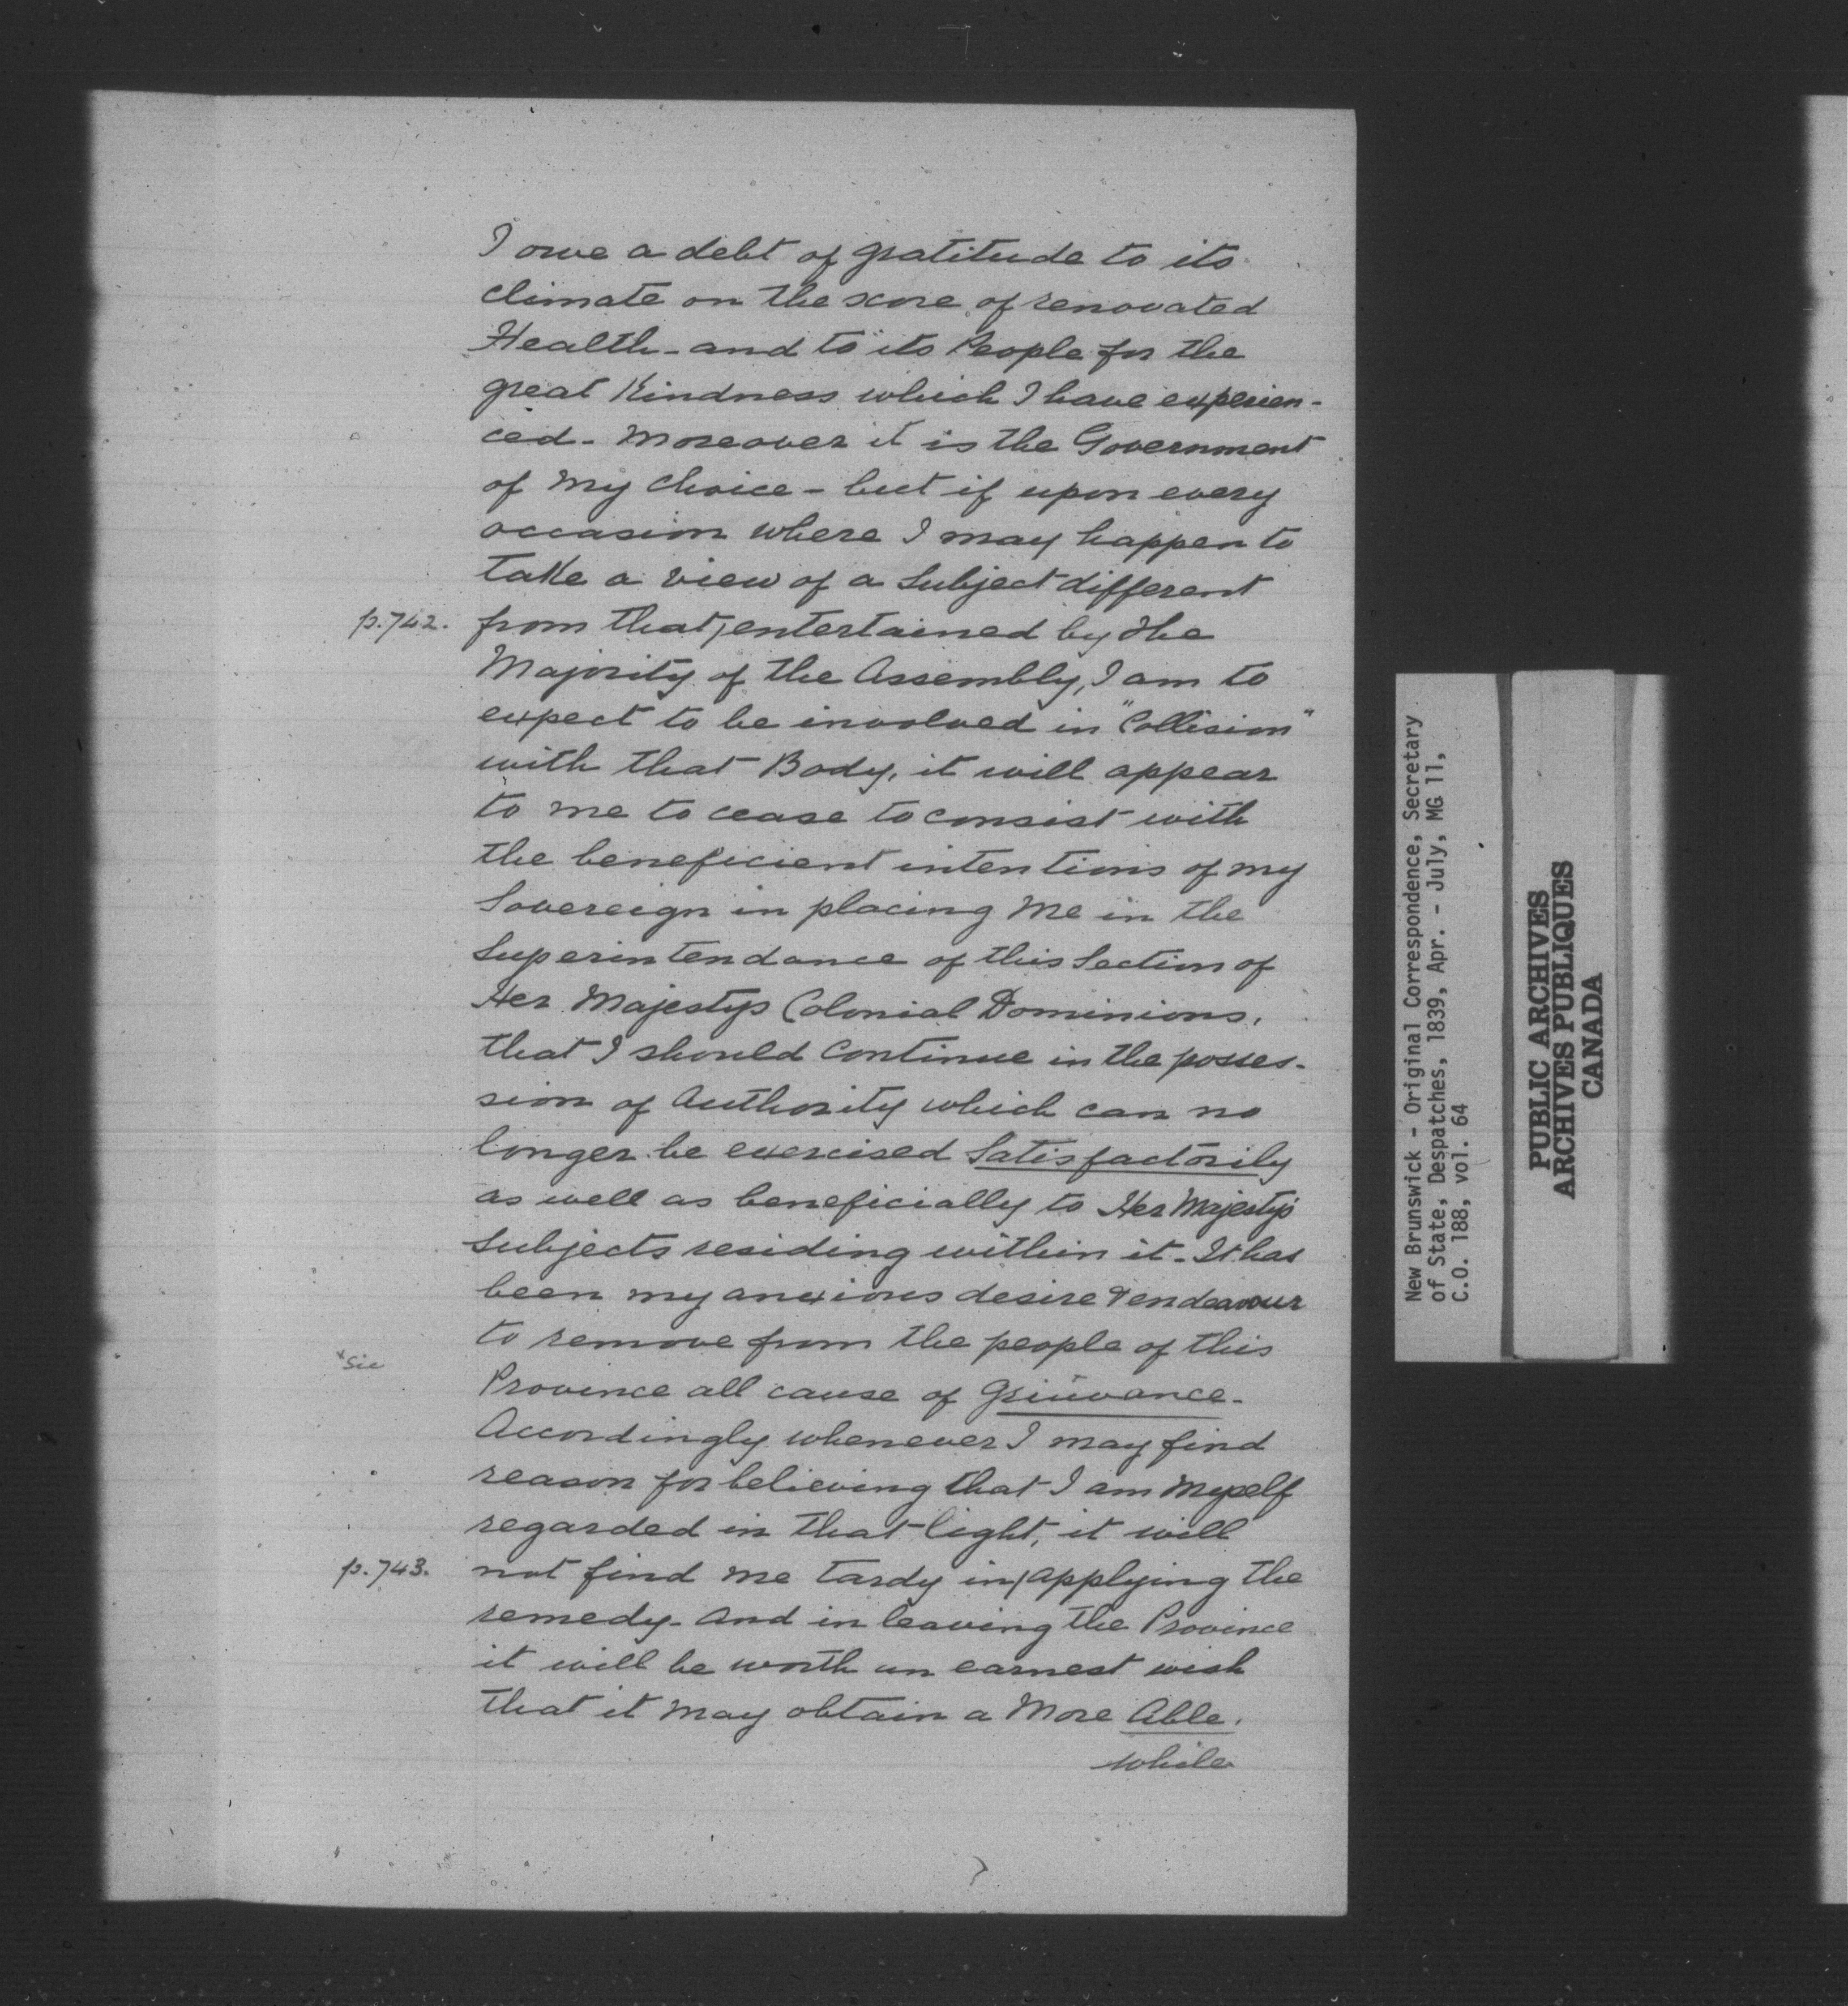 I owe a debt of gratitude to its
climate on the score of renovated
Health - and to its People for the
great Kindness which I have experien-
ced - Moreover it is the Government
of my choice - but if upon every
occasion where I may happen to
take a view of a Subject different
p.742. from that / entertained by the
Majority of the Assembly, I am to
expect to be involved in "Collision"
with that Body, it will appear
to me to cease to consist with
the beneficient intentions of my
Sovereign in placing Me in the
Superintendance of this Section of
Her Majestys Colonial Dominions,
that I should Continue in the posses-
sion of Authority which can no
longer be exercised Satisfactorily
as well as beneficially to Her Majestys
Subjects residing within it - It has
been my anxious desire & endeavour
to remove from the people of this
x Sic
Province all cause of Griiwance -
Accordingly whenever I may find
reason for believing that I am Myself
regarded in that light, it will
p.743. not find me tardy in / applying the
remedy - And in leaving the Province
it will be worth un earnest wish
that it may obtain a More Able,
while
New Brunswick - Original Correspondence, Secretary
of State, Despatches, 1839, Apr. - July, MG 11,
C.O. 188, vol. 64
PUBLIC ARCHIVES
ARCHIVES PUBLIQUES
CANADA